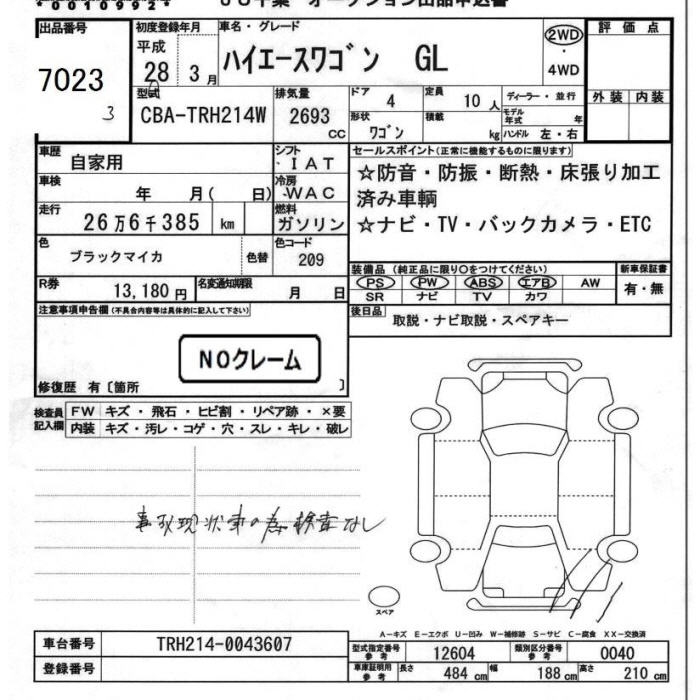 *00109924* JU千葉 オークション出品申込書
出品番号 7023 3
初度登録年月 平成 28年 3月
車名・グレード ハイエースワゴン GL
2WD・4WD
評価点
外装 内装
型式 CBA-TRH214W
排気量 2693 CC
ドア 4
定員 10人
形状 ワゴン
積載 kg
ディーラー・並行
モデル年式 年
ハンドル 左・右
車歴 自家用
シフト ・IAT
車検 年 月( 日)
冷房 ・WAC
走行 26万6千385 km
燃料 ガソリン
色 ブラックマイカ 色替
色コード 209
R券 13,180円
名変通知期限 月 日
セールスポイント(正常に機能するものに限ります)
☆防音・防振・断熱・床張り加工
済み車輌
☆ナビ・TV・バックカメラ・ETC
装備品(純正品に限り○をつけてください)
PS PW ABS エアB AW
SR ナビ TV カワ
新車保証書 有・無
後日品 取説・ナビ取説・スペアキー
注意事項申告欄(不具合内容等は具体的に記入して下さい)
NOクレーム
修復歴 有〔箇所 〕
検査員記入欄
FW キズ・飛石・ヒビ割・リペア跡・×要
内装 キズ・汚レ・コゲ・穴・スレ・キレ・破レ
事故現状車の為検査なし
スペア
A-キズ E-エクボ U-凹み W-補修跡 S-サビ C-腐食 XX-交換済
車台番号 TRH214-0043607
登録番号
型式指定番号 参考 12604
類別区分番号 参考 0040
車庫証明用 参考 長さ 484cm 幅 188cm 高さ 210cm